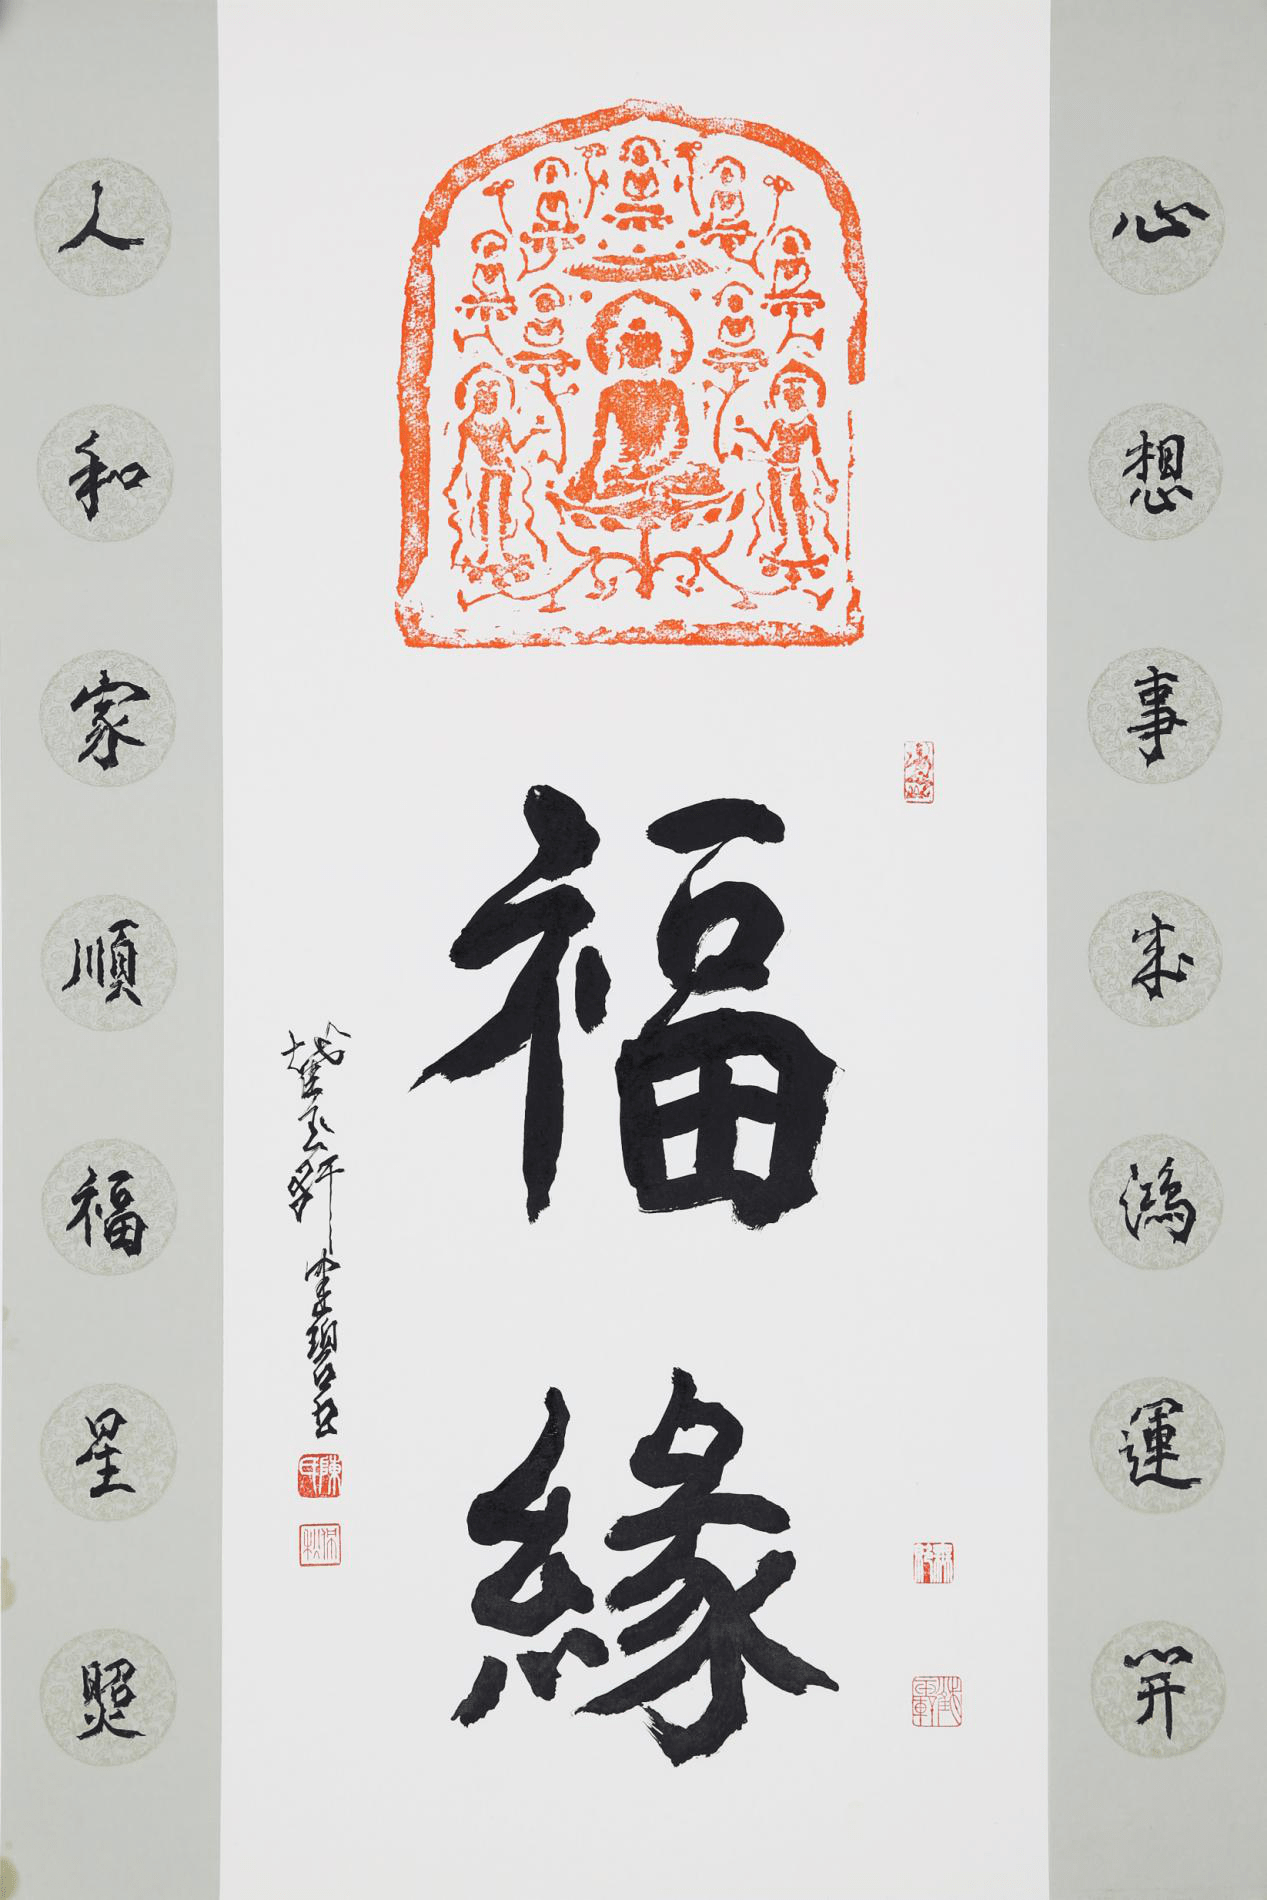 心想事成鴻運開
福緣
人和家順福星照